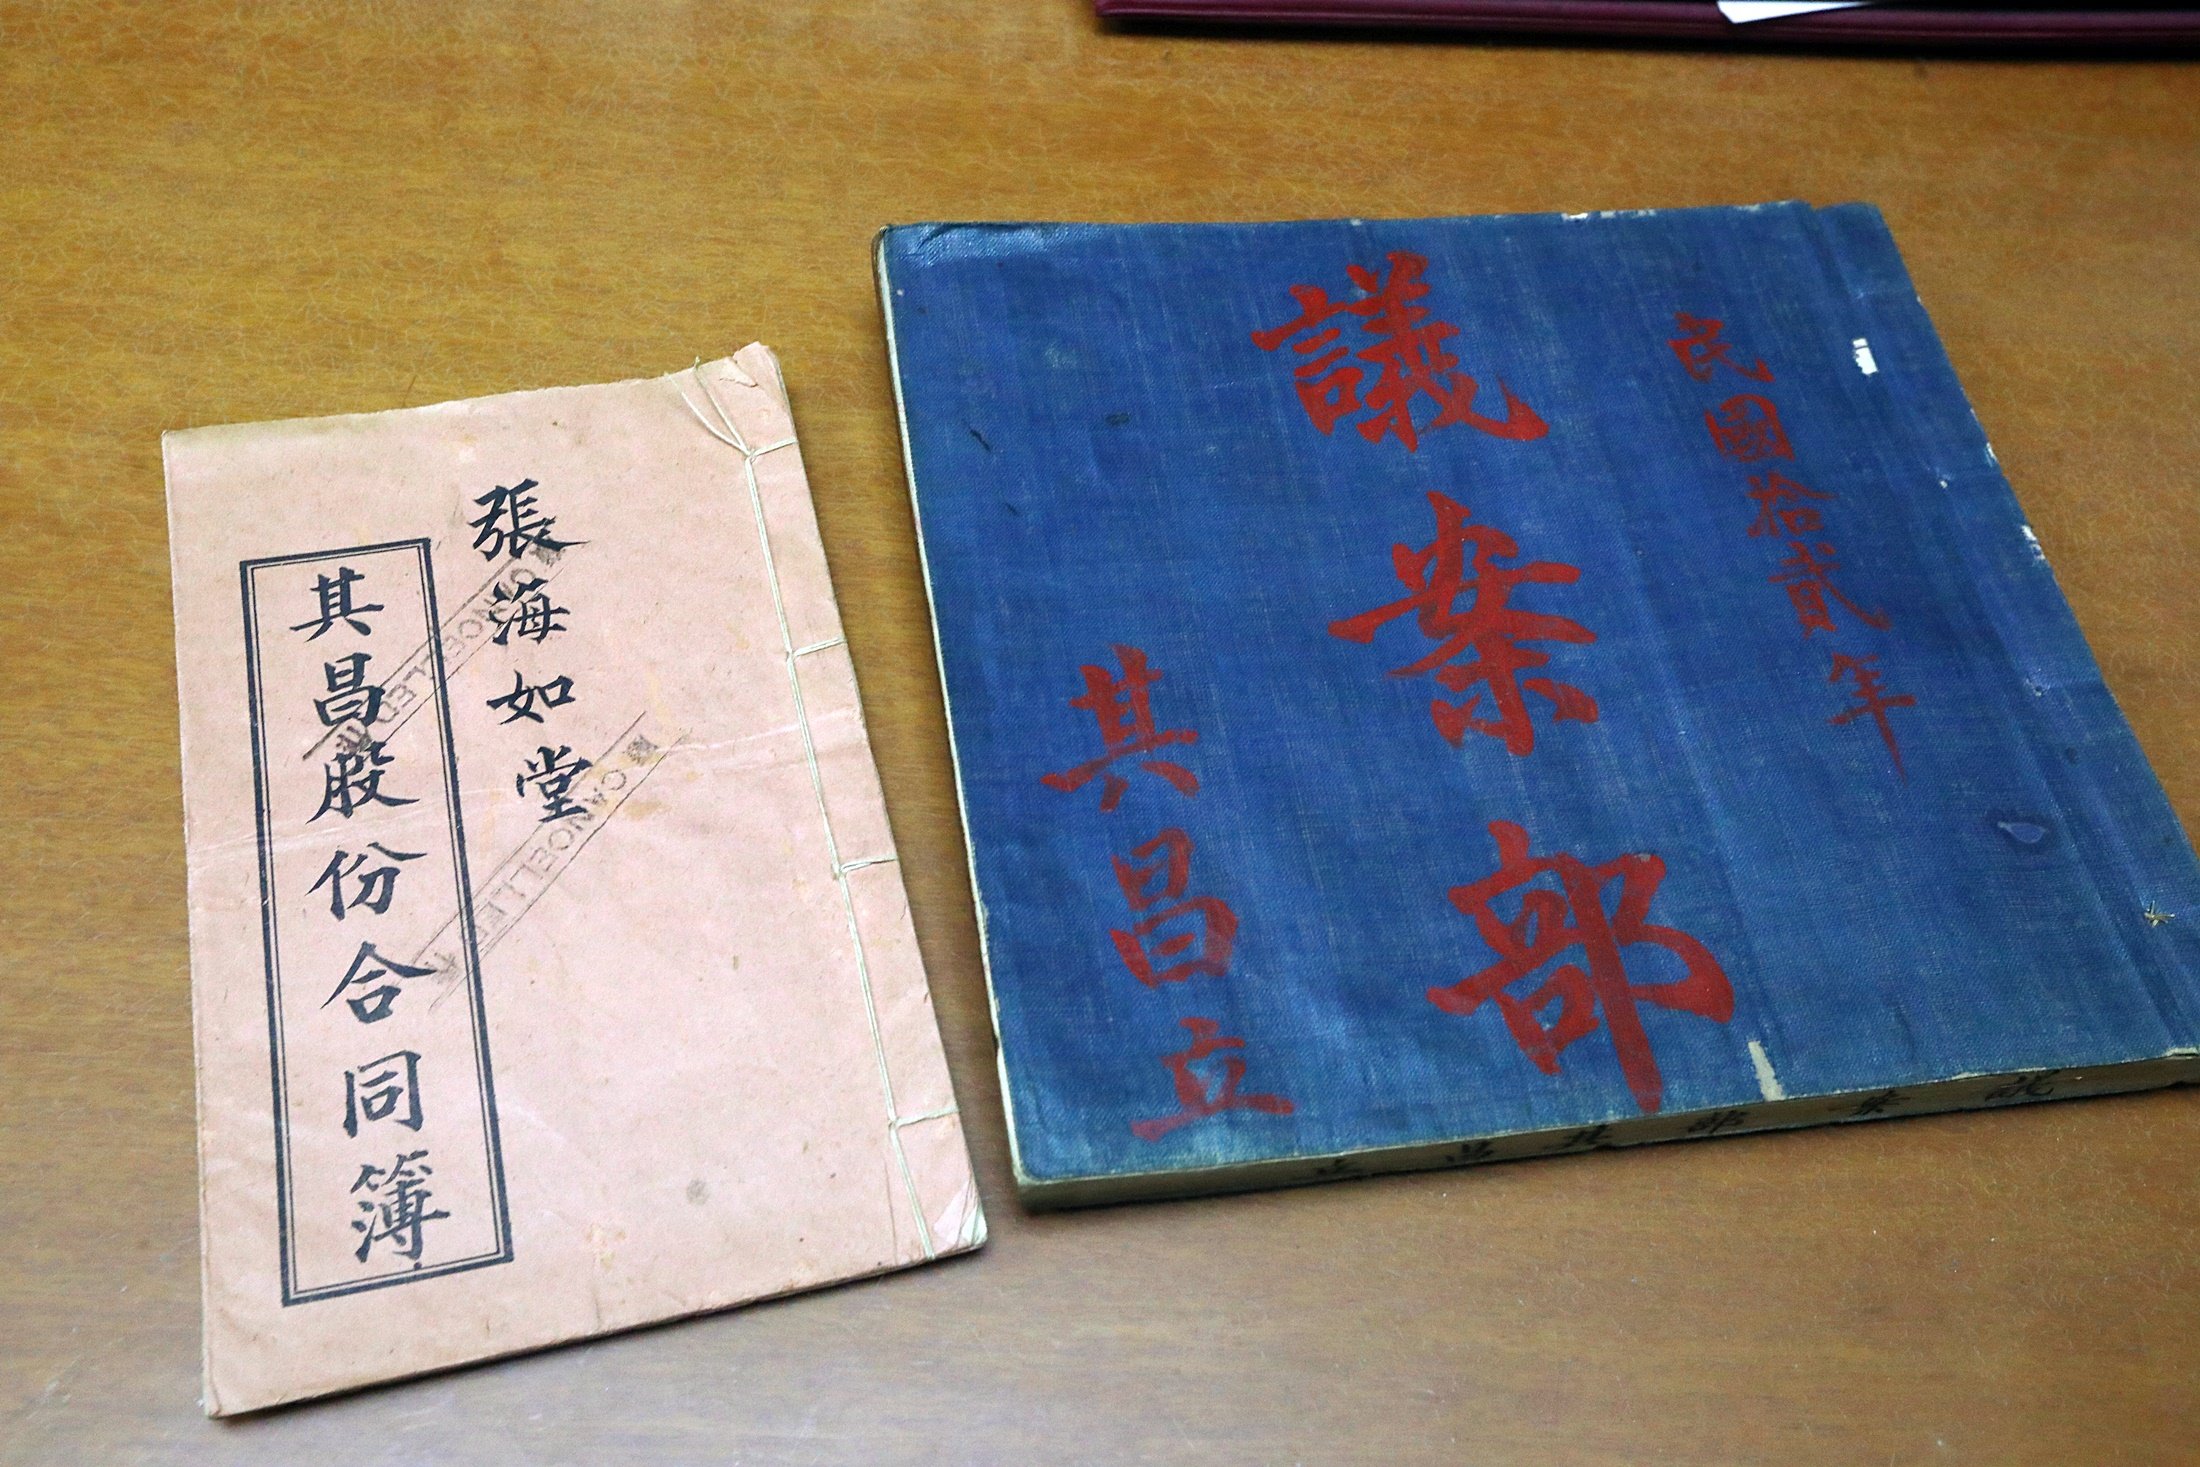 張海如堂
其昌股份合同簿
CANCELLED
CANCELLED
民國拾貳年
議案部
其昌立